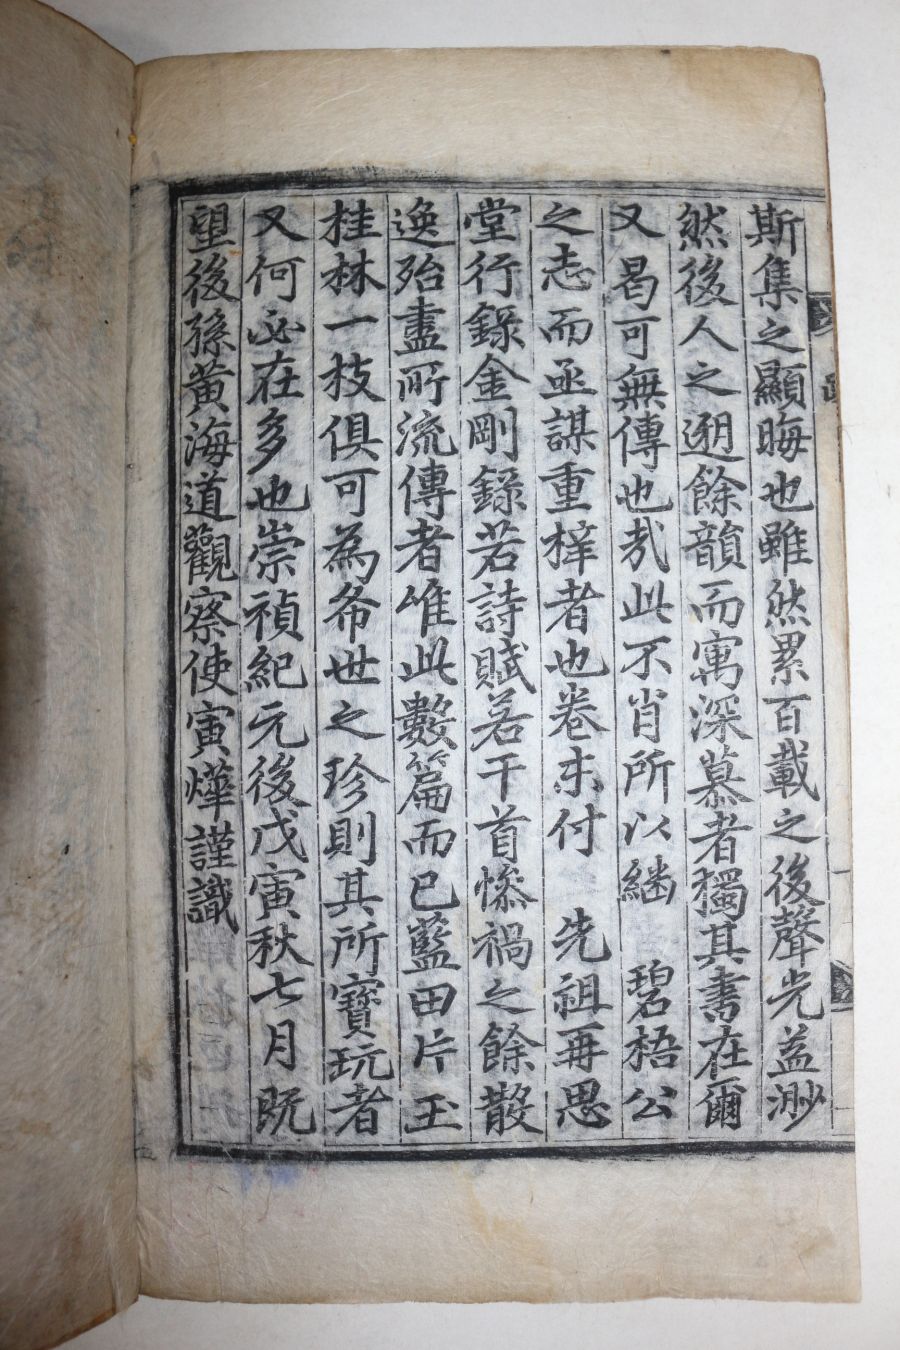 斯集之顯晦也雖然累百載之後聲光益渺
然後人之遡餘韻而寓深慕者獨其書在爾
又曷可無傳也哉此不肖所以繼 碧梧公
之志而亟謀重梓者也卷末付 先祖再思
堂行錄金剛錄若詩賦若干首慘禍之餘散
逸殆盡所流傳者惟此數篇而已藍田片玉
桂林一枝俱可為希世之珍則其所寶玩者
又何必在多也崇禎紀元後戊寅秋七月旣
望後孫黃海道觀察使寅燁謹識